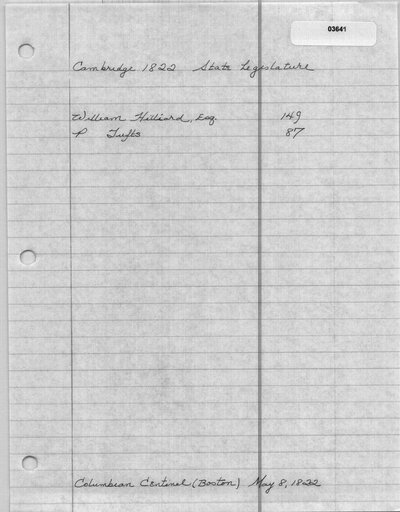 03641
Cambridge 1822 State Legislature
William Hilliard, Esq. 149
P Tufts 87
Columbian Centinel (Boston) May 8, 1822